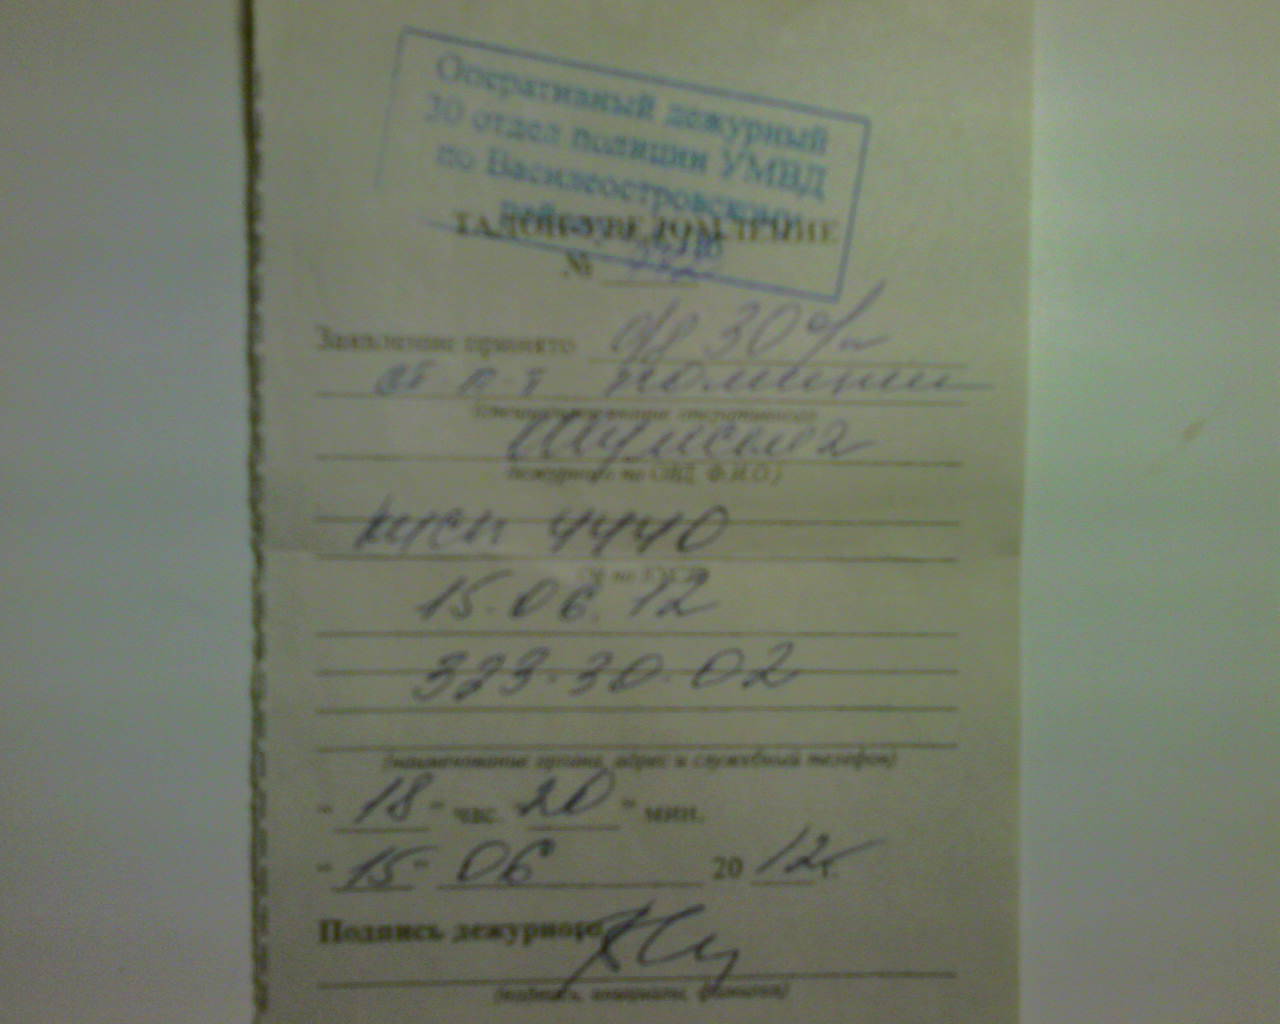 Оперативный дежурный
30 отдел полиции УМВД
по Василеостровскому
ТАЛОН-УВЕДОМЛЕНИЕ
№
Заявление принято о/д 30 о/п
ст. л-т полиции
(специальное звание оперативного
дежурного по ОВД, Ф.И.О.)
КУСП 4440
(№ по КУСП)
15.06.12
323-30-02
(наименование органа, адрес и служебный телефон)
"18" час. "20" мин.
"15" 06 2012 г.
Подпись дежурного
(подпись, инициалы, фамилия)